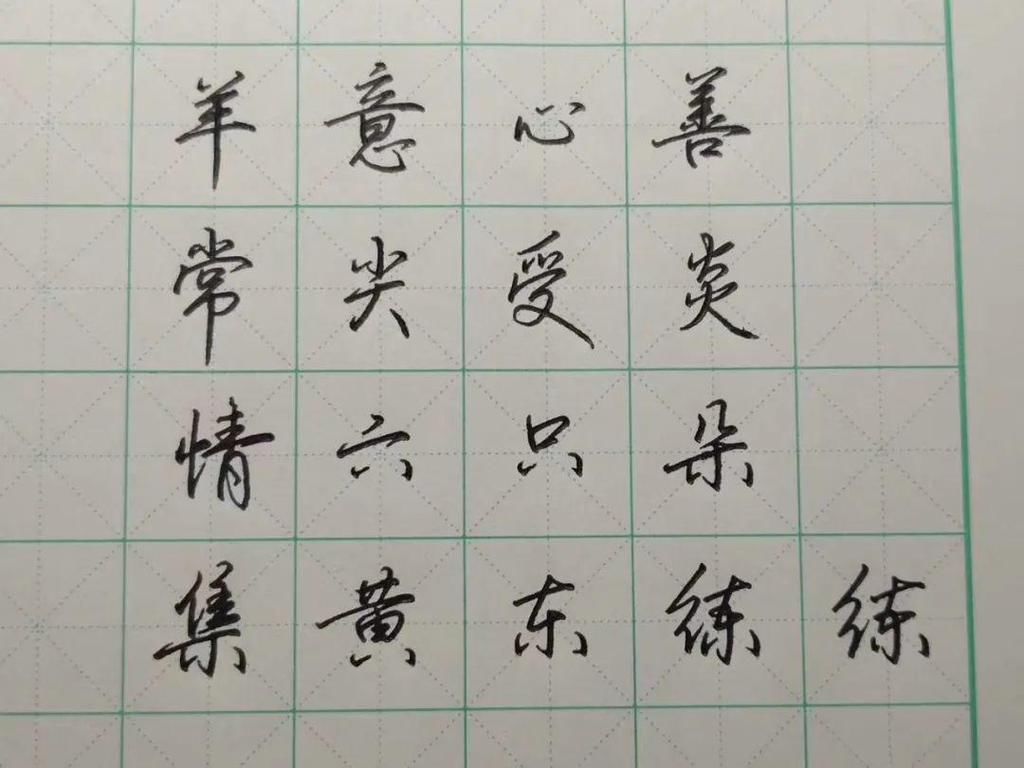 羊意心善
常尖受炎
情六只朵
集黄东练练